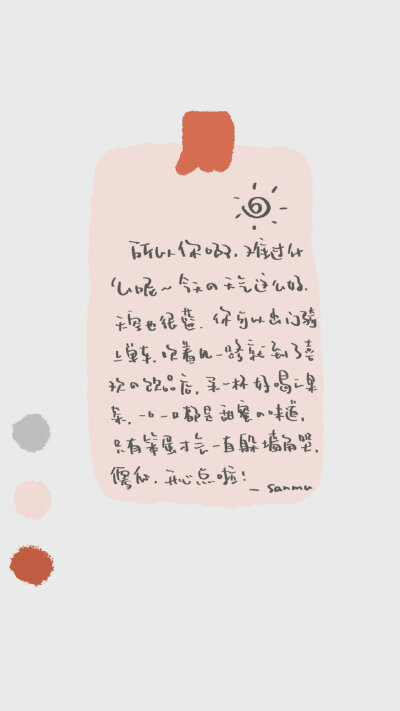 所以你啊，难过什
么呢~今天の天气这么好，
天空也很蓝，你可以出门骑
上单车，吹着风一路就到了喜
欢の饮品店，来一杯好喝の果
茶，一口一口都是甜蜜の味道，
只有笨蛋才会一直躲墙角哭，
傻瓜，开心点啦！
— sanmu